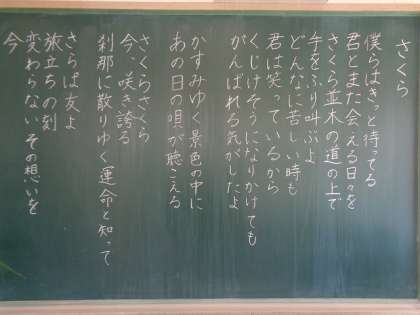 さくら
僕らはきっと待ってる
君とまた会える日々を
さくら並木の道の上で
手をふり叫ぶよ
どんなに苦しい時も
君は笑っているから
くじけそうになりかけても
がんばれる気がしたよ
かすみゆく景色の中に
あの日の唄が聴こえる
さくらさくら
今、咲き誇る
刹那に散りゆく運命と知って
さらば友よ
旅立ちの刻
変わらない その想いを
今